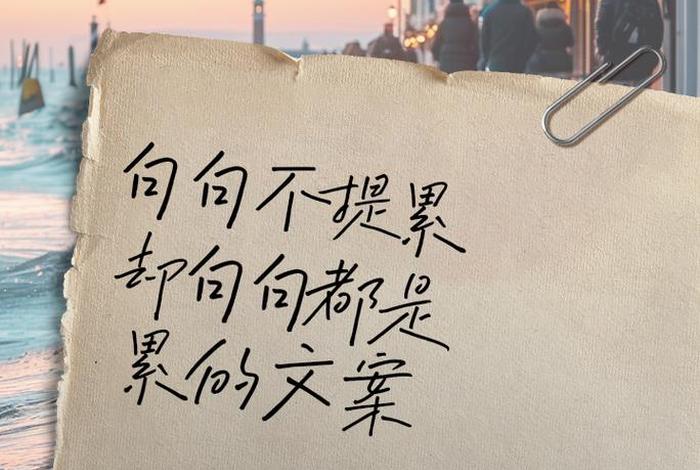 句句不提累
却句句都是
累的文案